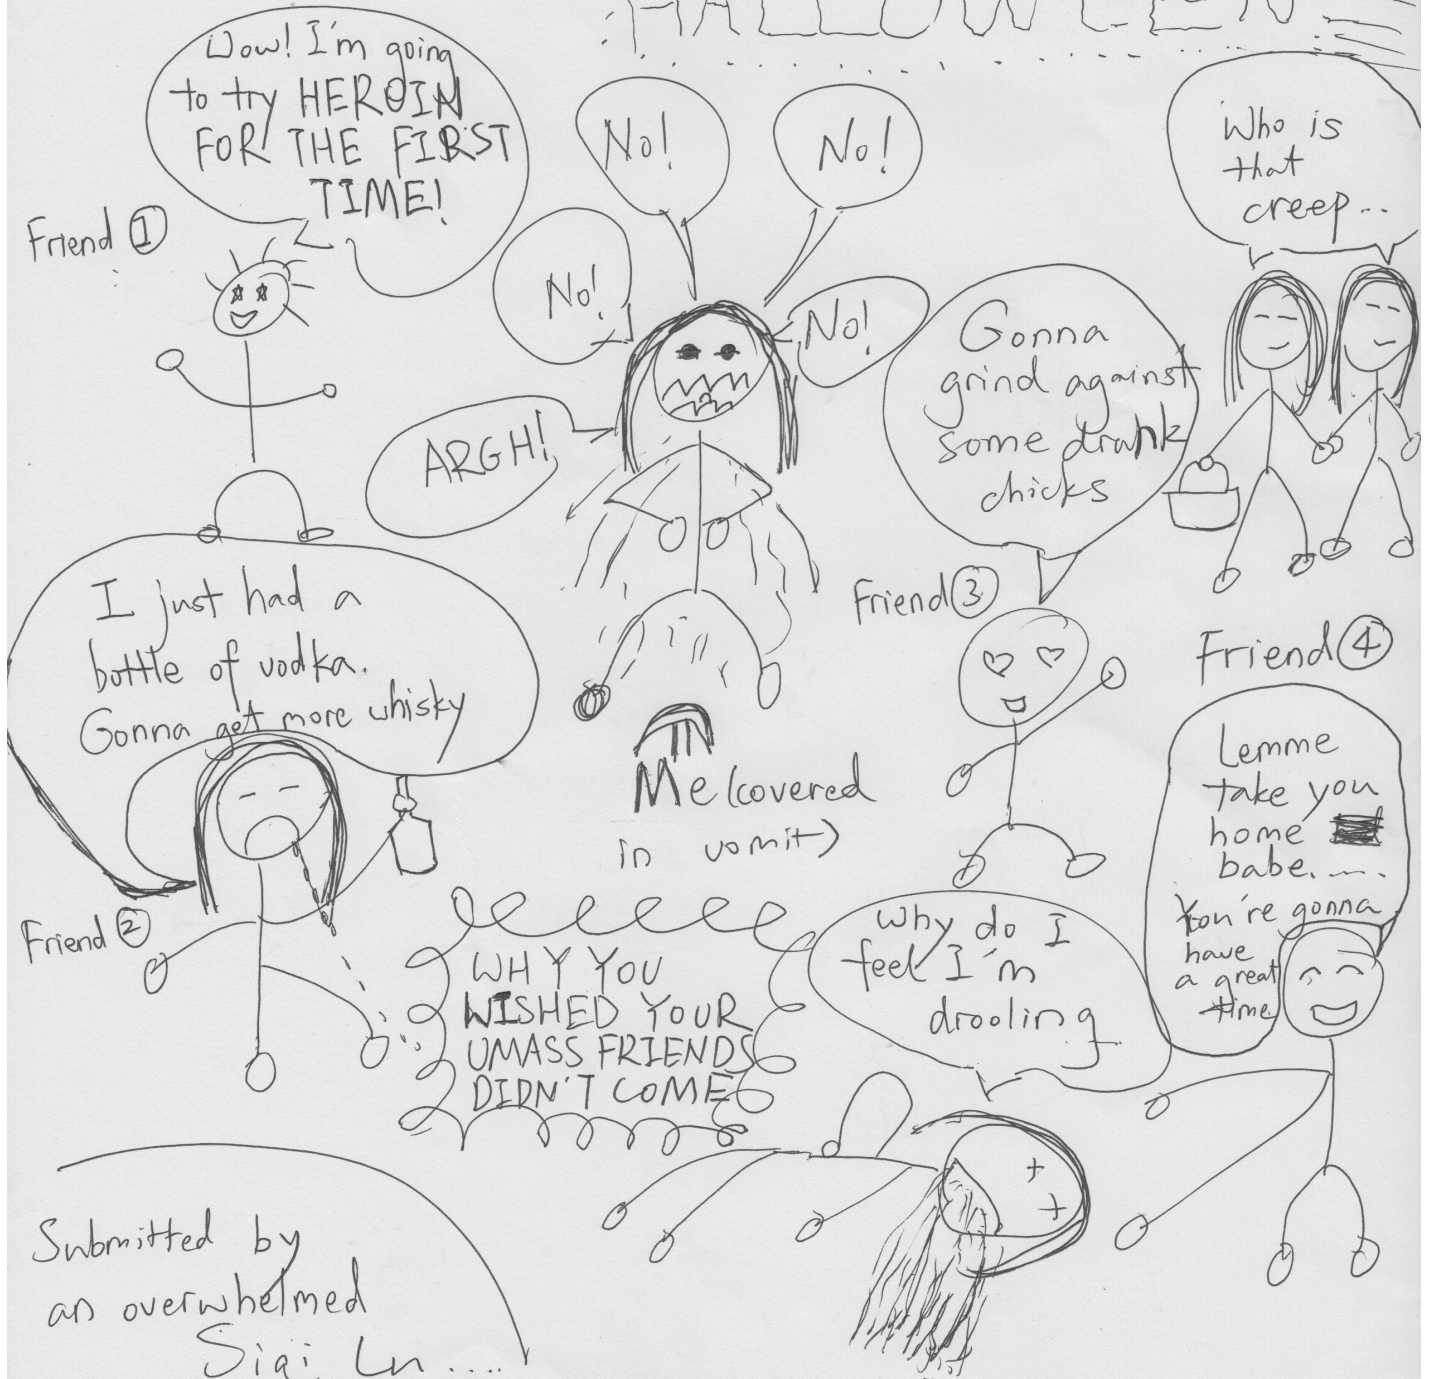 HALLOWEEN
Wow! I'm going
to try HEROIN
FOR THE FIRST
TIME!
Friend ①
No!
No!
No!
No!
ARGH!
Who is
that
creep..
Gonna
grind against
some drunk
chicks
Friend ③
I just had a
bottle of vodka.
Gonna get more whisky
Friend ②
Me (covered
in vomit)
Friend ④
Lemme
take you
home
babe.....
You're gonna
have
a great
time
Why do I
feel I'm
drooling
WHY YOU
WISHED YOUR
UMASS FRIENDS
DIDN'T COME
Submitted by
an overwhelmed
Siqi Lu....